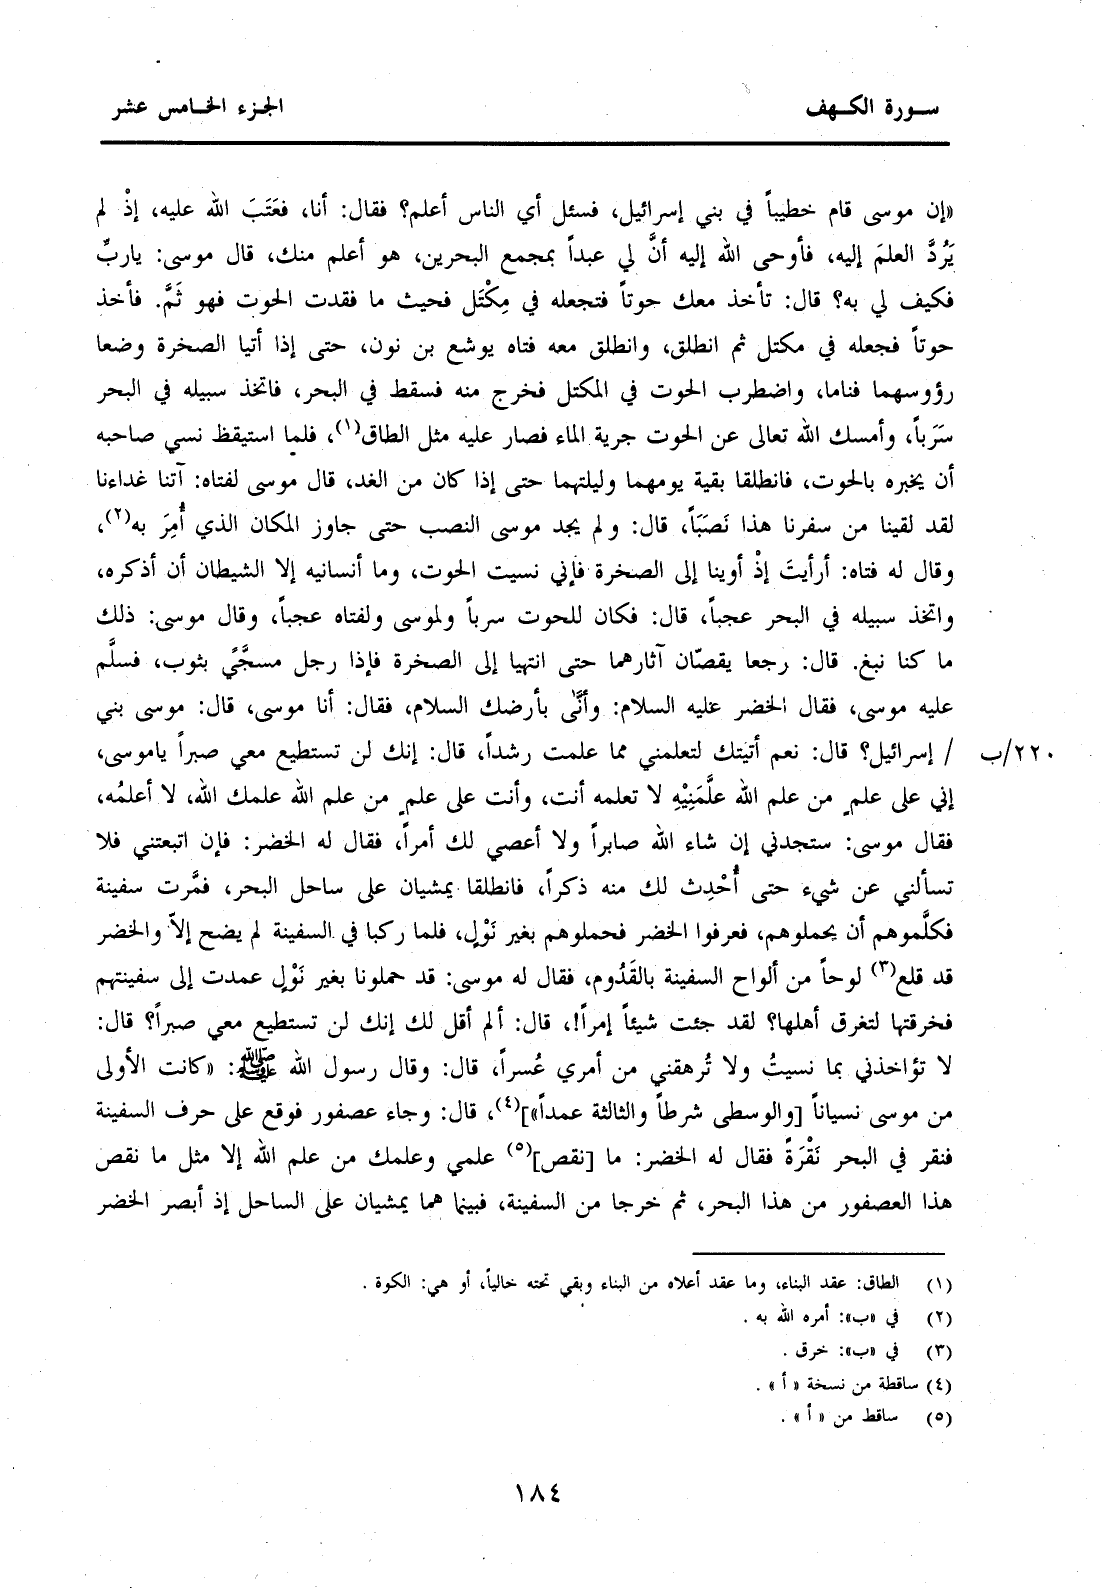 ســورة الكـهف
الجـزء الخـامس عشر
«إن موسى قام خطيباً في بني إسرائيل، فسئل أي الناس أعلم؟ فقال: أنا، فعَتَبَ الله عليه، إذْ لم
يَرُدَّ العلمَ إليه، فأوحى الله إليه أنَّ لي عبداً بمجمع البحرين، هو أعلم منك، قال موسى: ياربِّ
فكيف لي به؟ قال: تأخذ معك حوتاً فتجعله في مِكْتَل فحيث ما فقدت الحوت فهو ثَمَّ. فأخذ
حوتاً فجعله في مكتل ثم انطلق، وانطلق معه فتاه يوشع بن نون، حتى إذا أتيا الصخرة وضعا
رؤوسهما فناما، واضطرب الحوت في المكتل فخرج منه فسقط في البحر، فاتخذ سبيله في البحر
سَرَباً، وأمسك الله تعالى عن الحوت جرية الماء فصار عليه مثل الطاق(١)، فلما استيقظ نسي صاحبه
أن يخبره بالحوت، فانطلقا بقية يومهما وليلتهما حتى إذا كان من الغد، قال موسى لفتاه: آتنا غداءنا
لقد لقينا من سفرنا هذا نَصَبَاً، قال: ولم يجد موسى النصب حتى جاوز المكان الذي أُمِرَ به(٢)،
وقال له فتاه: أرأيتَ إذْ أوينا إلى الصخرة فإني نسيت الحوت، وما أنسانيه إلا الشيطان أن أذكره،
واتخذ سبيله في البحر عجباً، قال: فكان للحوت سرباً ولموسى ولفتاه عجباً، وقال موسى: ذلك
ما كنا نبغ. قال: رجعا يقصّان آثارهما حتى انتهيا إلى الصخرة فإذا رجل مسجَّىً بثوب، فسلَّم
عليه موسى، فقال الخضر عليه السلام: وأنَّى بأرضك السلام، فقال: أنا موسى، قال: موسى بني
٢٢٠/ب / إسرائيل؟ قال: نعم أتيتك لتعلمني مما علمت رشداً، قال: إنك لن تستطيع معي صبراً ياموسى،
إني على علمٍ من علم الله علَّمَنِيْهِ لا تعلمه أنت، وأنت على علمٍ من علم الله علمك الله، لا أعلمُه،
فقال موسى: ستجدني إن شاء الله صابراً ولا أعصي لك أمراً، فقال له الخضر: فإن اتبعتني فلا
تسألني عن شيء حتى أُحْدِث لك منه ذكراً، فانطلقا يمشيان على ساحل البحر، فمَّرت سفينة
فكلَّموهم أن يحملوهم، فعرفوا الخضر فحملوهم بغير نَوْلٍ، فلما ركبا في السفينة لم يضح إلاّ والخضر
قد قلع(٣) لوحاً من ألواح السفينة بالقَدُوم، فقال له موسى: قد حملونا بغير نَوْلٍ عمدت إلى سفينتهم
فخرقتها لتغرق أهلها؟ لقد جئت شيئاً إمراً!، قال: ألم أقل لك إنك لن تستطيع معي صبراً؟ قال:
لا تؤاخذني بما نسيتُ ولا تُرهقني من أمري عُسراً، قال: وقال رسول الله ﷺ: «كانت الأولى
من موسى نسياناً [والوسطى شرطاً والثالثة عمداً»](٤)، قال: وجاء عصفور فوقع على حرف السفينة
فنقر في البحر نَقْرَةً فقال له الخضر: ما [نقص](٥) علمي وعلمك من علم الله إلا مثل ما نقص
هذا العصفور من هذا البحر، ثم خرجا من السفينة، فبينما هما يمشيان على الساحل إذ أبصر الخضر
(١) الطاق: عقد البناء، وما عقد أعلاه من البناء وبقي تحته خالياً، أو هي: الكوة .
(٢) في «ب»: أمره الله به .
(٣) في «ب»: خرق .
(٤) ساقطة من نسخة « أ » .
(٥) ساقط من « أ » .
١٨٤